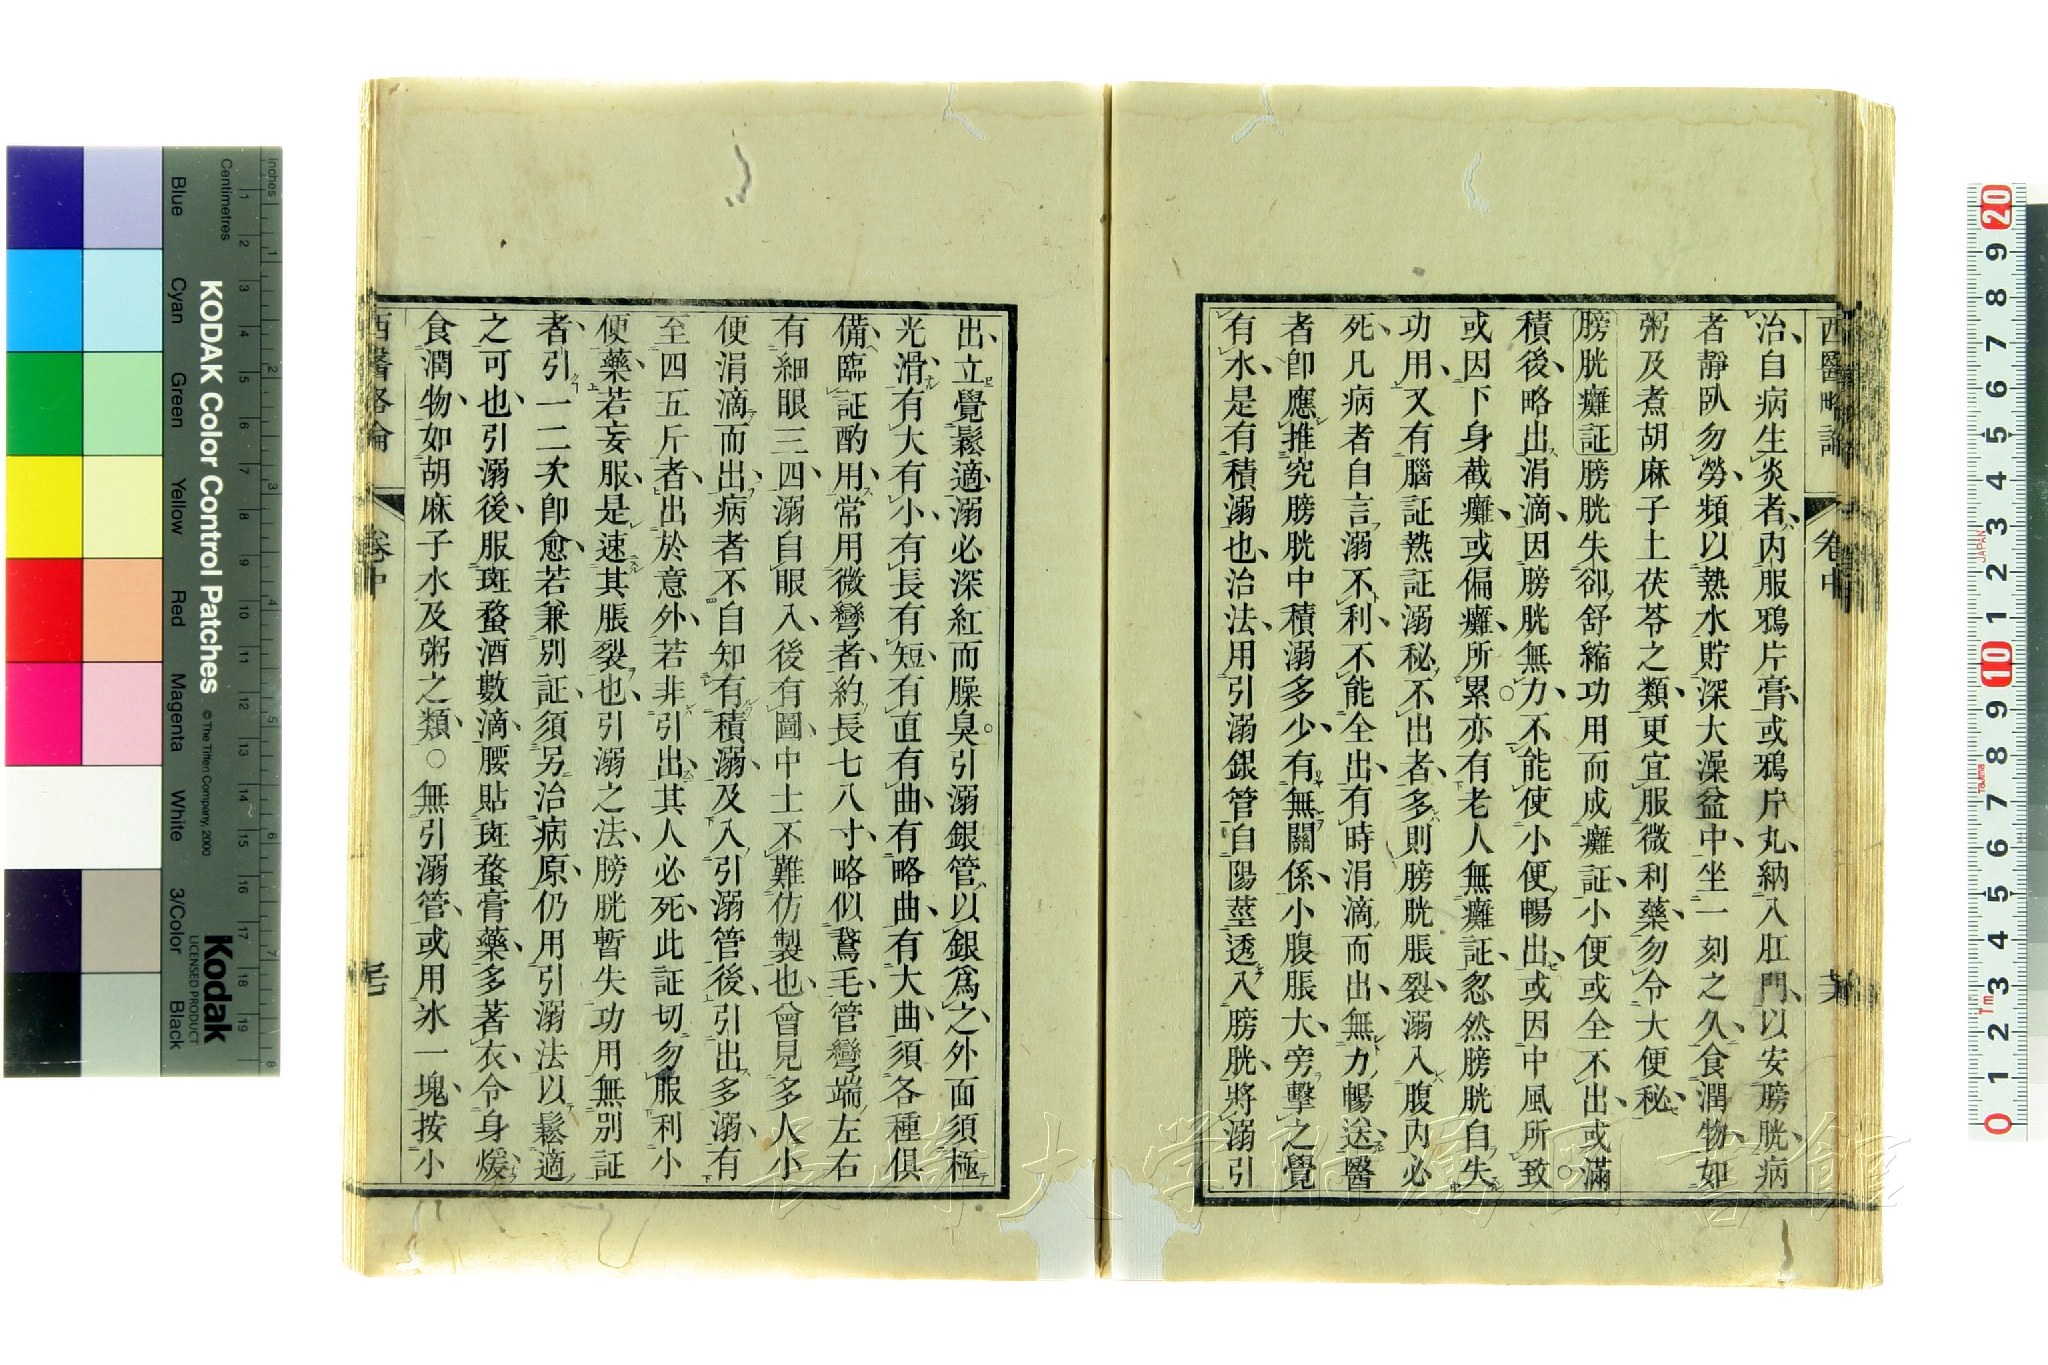 西醫略論
卷中
治自病生炎者內服鴉片膏或鴉片丸納入肛門以安膀胱病
者靜臥勿勞頻以熱水貯深大澡盆中坐一刻之久食潤物如
粥及煮胡麻子土茯苓之類更宜服微利藥勿令大便秘
膀胱癱証膀胱失卻舒縮功用而成癱証小便或全不出或滿
積後略出涓滴因膀胱無力不能使小便暢出或因中風所致
或因下身截癱或偏癱所累亦有老人無癱証忽然膀胱自失
功用又有腦証熱証溺秘不出者多則膀胱脹裂溺入腹內必
死凡病者自言溺不利不能全出有時涓滴而出無力暢送醫
者卽應推究膀胱中積溺多少有無關係小腹脹大旁擊之覺
有水是有積溺也治法用引溺銀管自陽莖透入膀胱將溺引
出立覺鬆適溺必深紅而臊臭○引溺銀管以銀爲之外面須極
光滑有大有小有長有短有直有曲有略曲有大曲須各種俱
備臨証酌用常用微彎者約長七八寸略似鵞毛管彎端左右
有細眼三四溺自眼入後有圖中土不難仿製也曾見多人小
便涓滴而出病者不自知有積溺及入引溺管後引出多溺有
至四五斤者出於意外若非引出其人必死此証切勿服利小
便藥若妄服是速其脹裂也引溺之法膀胱暫失功用無別証
者引一二次卽愈若兼別証須另治病原仍用引溺法以鬆適
之可也引溺後服斑蝥酒數滴腰貼斑蝥膏藥多著衣令身煖
食潤物如胡麻子水及粥之類○無引溺管或用氷一塊按小
西醫略論
卷中
KODAK Color Control Patches
© The Tiffen Company, 2000
Kodak
LICENSED PRODUCT
Inches
Centimetres
Blue
Cyan
Green
Yellow
Red
Magenta
White
3/Color
Black
長崎大学附属図書館
JAPAN